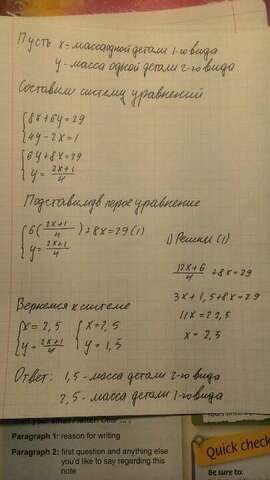 Пусть x = масса одной детали 1-го вида
y - масса одной детали 2-го вида
Составим систему уравнений
8x+6y=29
4y-2x=1
6y+8x=29
y = 2x+1/4
Подставим в первое уравнение
6(2x+1/4)+8x=29 (1)
y = 2x+1/4
1) Решим (1)
12x+6/4 +8x=29
3x+1,5+8x=29
11x=27,5
x = 2,5
Вернемся к системе
x = 2,5
y = 2x+1/4
x=2,5
y = 1,5
Ответ: 1,5 - масса детали 2-го вида
2,5 - масса детали 1-го вида
Paragraph 1: reason for writing
Paragraph 2: first question and anything else
you'd like to say regarding this
note
Quick check
Be sure to: